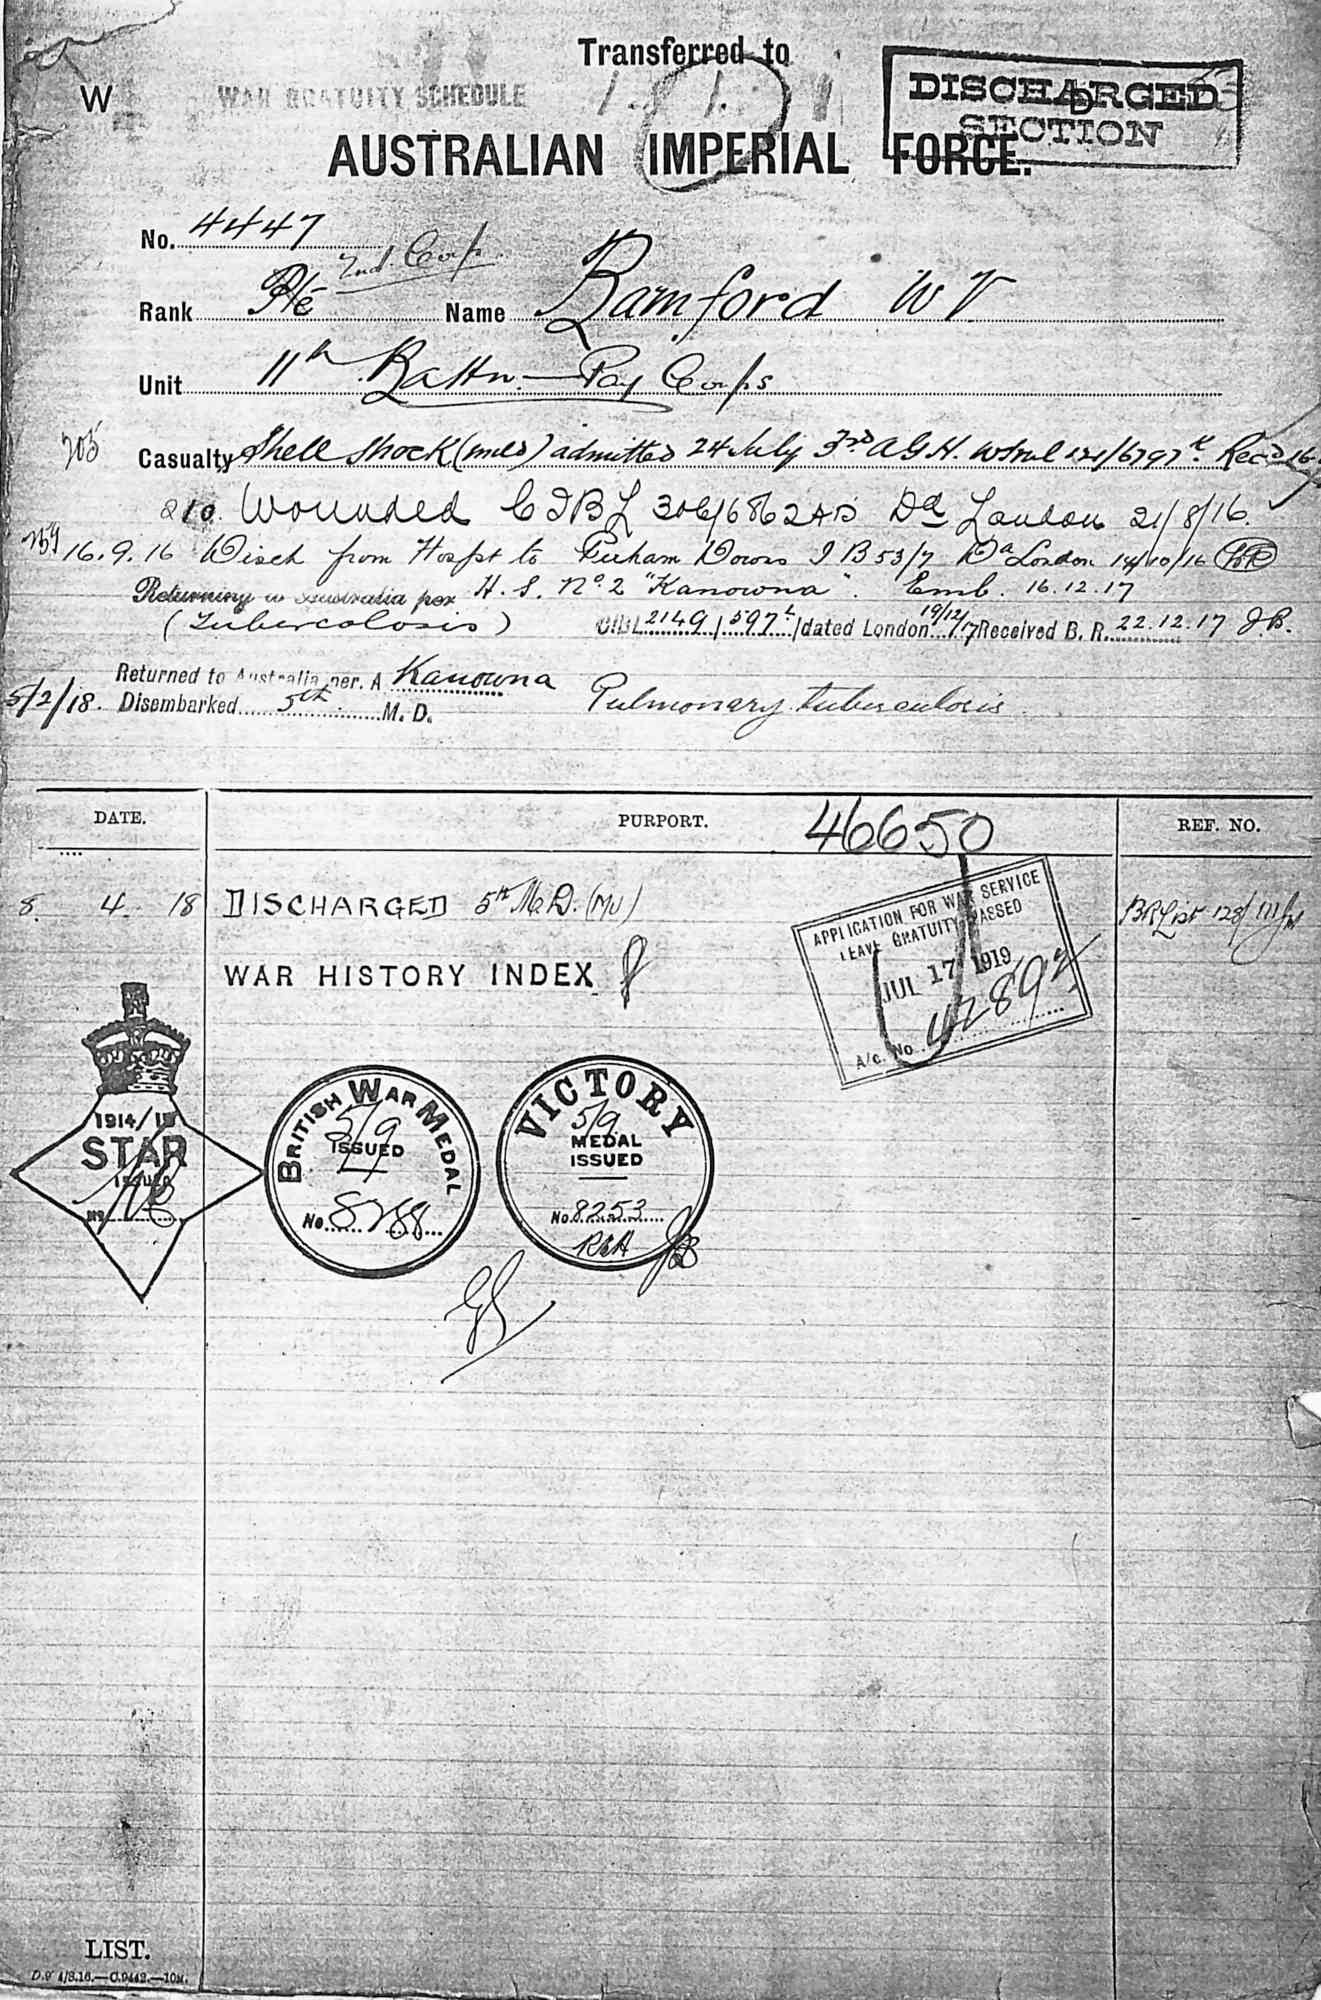 Transferred to
W
WAR GRATUITY SCHEDULE
DISCHARGED
SECTION
AUSTRALIAN IMPERIAL FORCE.
No. 4447
2nd Corp.
Rank Pte Name Bamford W V
Unit 11th Battn. — Pay Corps
205
Casualty Shell Shock (mild) admitted 24 July 3rd A G H. Rec'd 16
210 Wounded C I B L 306/6862AD Dd London 21/8/16.
16.9.16 Disch from Hospt to Perham Downs I B 53/7 Dd London 14/10/16
Returning to Australia per H. S. No. 2 "Kanowna". Emb. 16.12.17
(Tubercolosis) CIBL 2149/597 /dated London 19/12/17 Received B. R. 22.12.17 J.B.
Returned to Australia per. A Kanowna
5/2/18. Disembarked 5th M. D. Pulmonary tuberculosis
DATE. PURPORT. 46650 REF. NO.
8. 4. 18 DISCHARGED 5th M.D. (MU) BR List 128/111
WAR HISTORY INDEX
APPLICATION FOR WAR SERVICE
LEAVE GRATUITY PASSED
JUL 17 1919
A/c. No. 42892
1914/15
STAR
ISSUED
No.
BRITISH WAR MEDAL
5/9
ISSUED
No. 8288
VICTORY
5/9
MEDAL
ISSUED
No. 8253
LIST.
D.9 4/8.16.—C.9442.—10M.